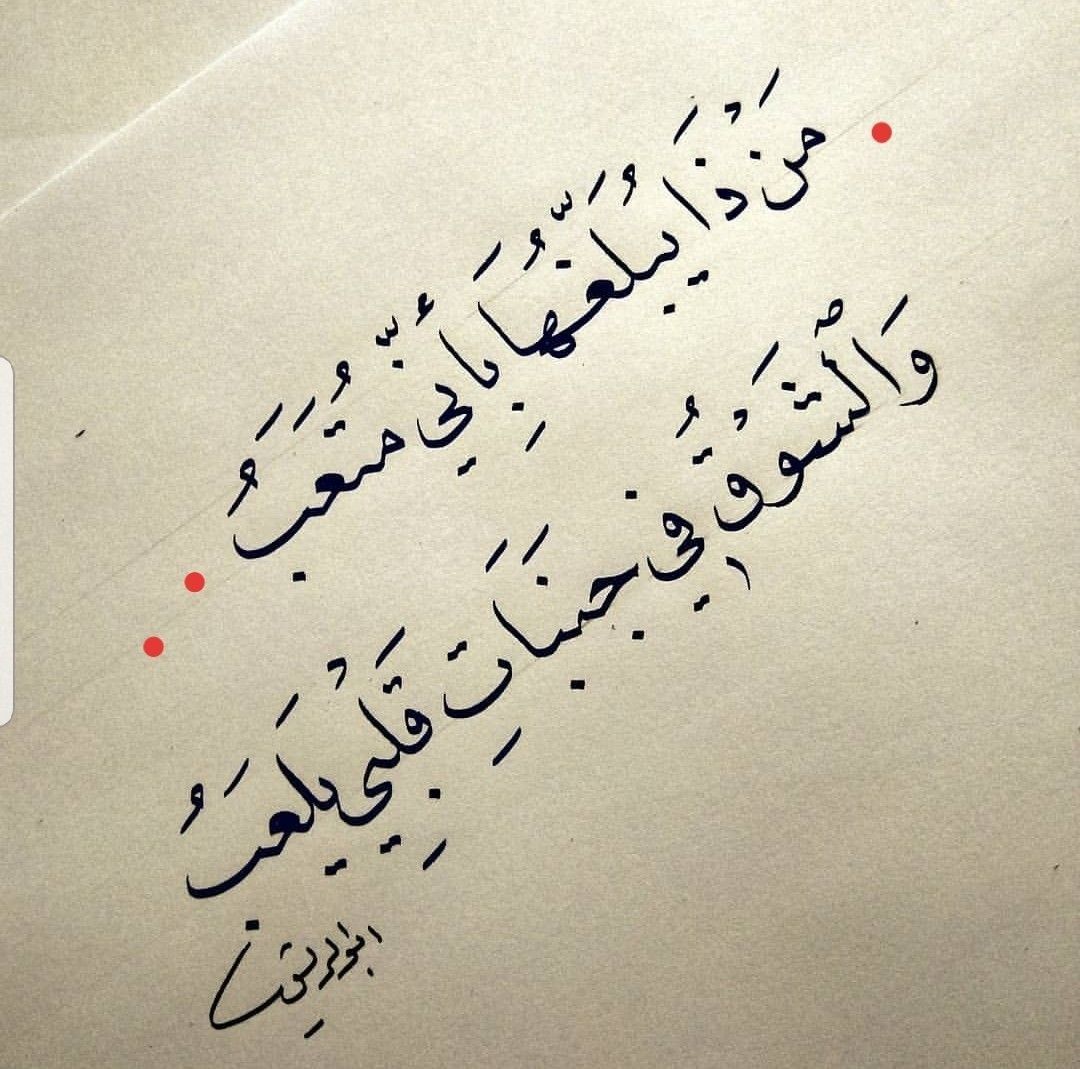 مَنْ ذَا يُبَلِّغُهَا بِأَنِّي مُتْعَبُ
وَٱلشَّوْقُ فِي جَنَبَاتِ قَلْبِي يَلْعَبُ